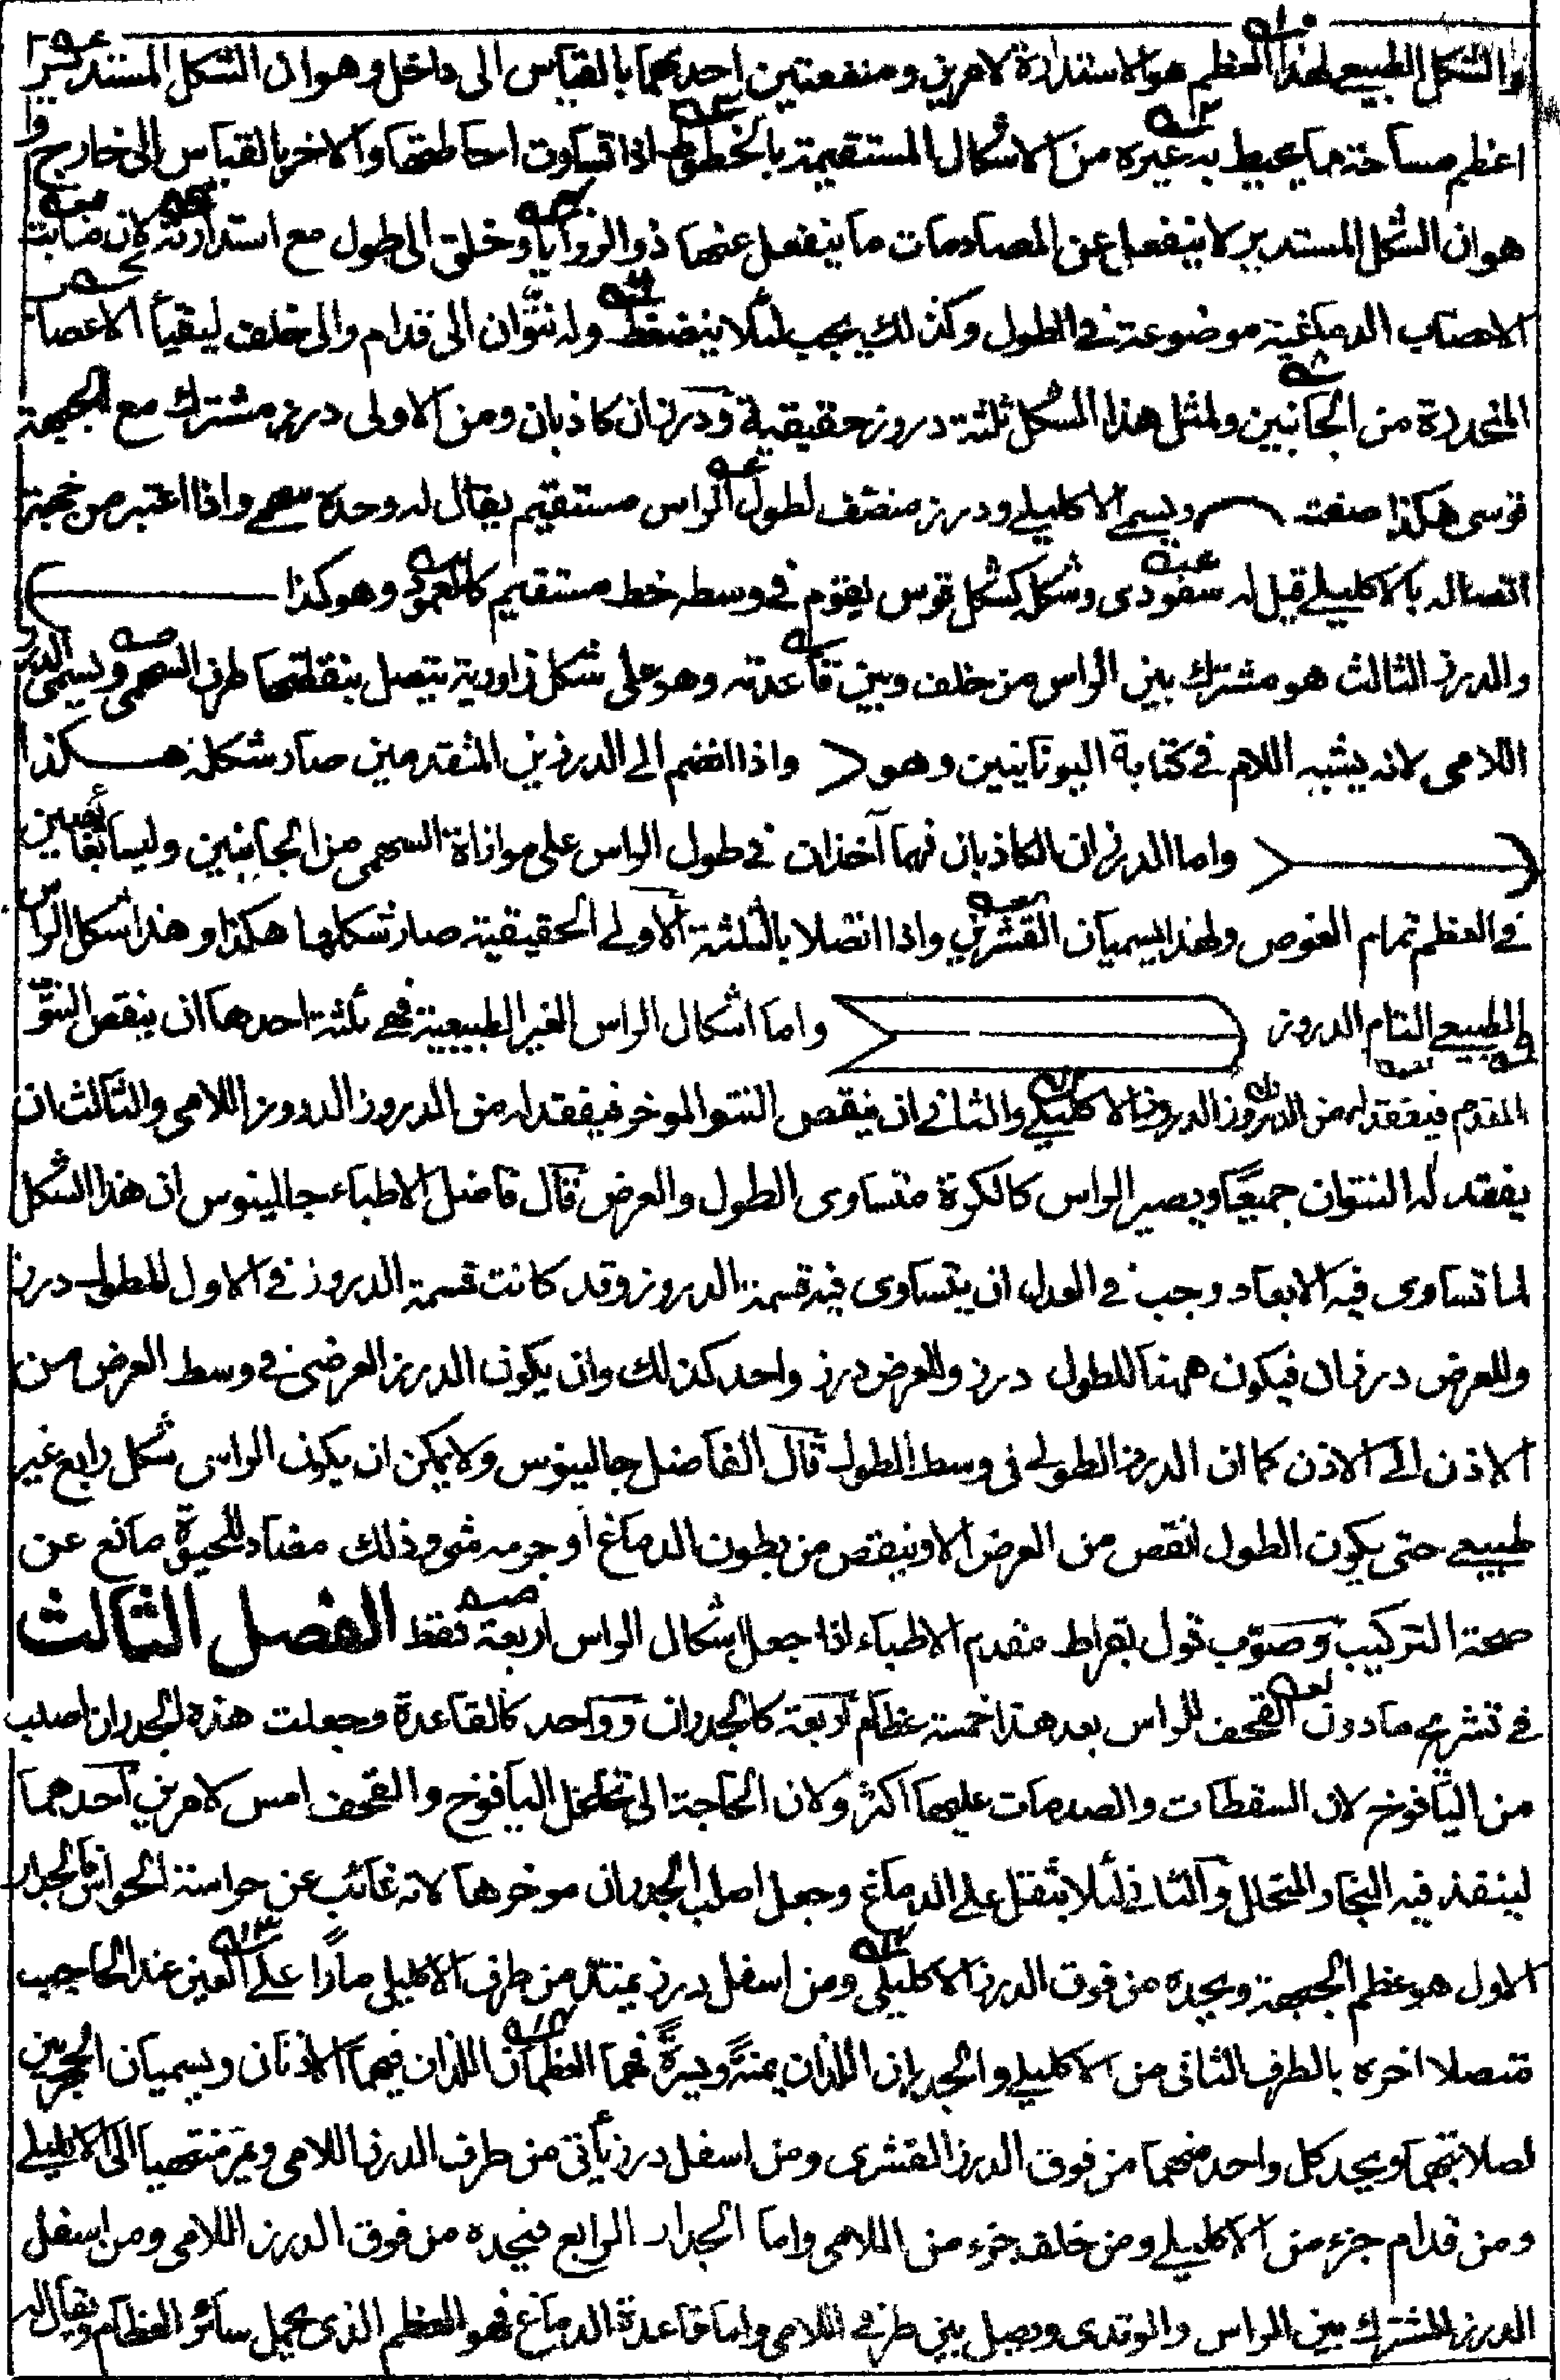 والشكل الطبيعي لهذا العظم هو الاستدارة لامرين ومنفعتين احدهما بالقياس الى داخل وهو ان الشكل المستدير
اعظم مساحة مما يحيط به غيره من الاشكال المستقيمة بالخطوط اذا تساوت احاطتها والاخر بالقياس الى خارج و
هو ان الشكل المستدير لا ينفعل عن المصادمات ما ينفعل عنها ذو الزوايا وخلق الى طول مع استدارته لان منابت
الاعصاب الدماغية موضوعة في الطول وكذلك يجب لئلا ينضغط وله نتوان الى قدام والى خلف ليقيا الاعصاب
المنحدرة من الجانبين ولمثل هذا الشكل ثلثة دروز حقيقية ودرزان كاذبان ومن الاولى درز مشترك مع الجبهة
قوسي هكذا صفته ويسمى الاكليلي ودرز منصف لطول الراس مستقيم يقال له وحده سهمي واذا اعتبر من جهة
اتصاله بالاكليلي قيل له سفودي وشكله كشكل قوس يقوم في وسطه خط مستقيم كالعمود وهو كذا
والدرز الثالث هو مشترك بين الراس من خلف وبين قاعدته وهو على شكل زاوية يتصل بنقطتها طرف السهمي ويسمى الدرز
اللامي لانه يشبه اللام في كتابة اليونانيين وهو > واذا انضم الى الدرزين المتقدمين صار شكله هكذا
واما الدرزان الكاذبان فهما آخذان في طول الراس على موازاة السهمي من الجانبين وليسا بغائصين
في العظم تمام الغوص ولهذا يسميان القشريين واذا اتصلا بالثلثة الاولى الحقيقية صار شكلها هكذا وهذا شكل الراس
الطبيعي التام الدروز واما اشكال الراس الغير الطبيعية فهي ثلثة احدهما ان ينقص النتو
المقدم فيفقد له من الدروز الدروز الاكليلي والثاني ان ينقص النتو الموخر فيفقد له من الدروز الدروز اللامي والثالث ان
يفقد له النتوان جميعا ويصير الراس كالكرة متساوى الطول والعرض قال فاضل الاطباء جالينوس ان هذا الشكل
لما تساوى فيه الابعاد وجب في العدل ان يتساوى فيه قسمة الدروز وقد كانت قسمة الدروز في الاول للطول درز
وللعرض درزان فيكون ههنا للطول درز وللعرض درز واحد كذلك وان يكون الدرز العرضي في وسط العرض من
الاذن الى الاذن كما ان الدرز الطولي في وسط الطول قال الفاضل جالينوس ولا يمكن ان يكون الراس شكل رابع غير
طبيعي حتى يكون الطول انقص من العرض الا وينقص من بطون الدماغ او جرمه شي وذلك مضاد للحيوة مانع عن
صحة التركيب وصوب قول بقراط مقدم الاطباء اذا جعل اشكال الراس اربعة فقط الفصل الثالث
في تشريح مادون القحف للراس بعد هذا خمسة عظام اربعة كالجدران وواحد كالقاعدة وجعلت هذه الجدران اصلب
من اليافوخ لان السقطات والصدمات عليها اكثر ولان الحاجة الى تخلخل اليافوخ والقحف امس لامرين احدهما
لينفذ فيه البخار المتحلل والثاني لئلا يثقل على الدماغ وجعل اصلب الجدران موخرها لانه غائب عن حراسة الحواس فالجدار
الاول هو عظم الجبهة ويحده من فوق الدرز الاكليلي ومن اسفل درز يمتد من طرف الاكليلي مارا على العين عند الحاجب
متصلا اخره بالطرف الثاني من الاكليلي والجداران اللذان يمنة ويسرة فهما العظمان اللذان فيهما الاذنان ويسميان الحجريين
لصلابتهما ويحد كل واحد منهما من فوق الدرز القشرى ومن اسفل درز يأتي من طرف الدرز اللامي ويمر منتهيا الى الاكليلي
ومن قدام جزء من الاكليلي ومن خلف جزء من اللامى واما الجدار الرابع فيحده من فوق الدرز اللامي ومن اسفل
الدرز المشترك بين الراس والوتدى ويصل بين طرفي اللامى واما قاعدة الدماغ فهو العظم الذى يحمل سائر العظام ويقال له